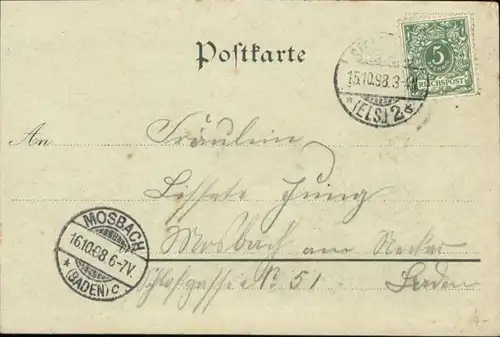 Postkarte
5
REICHSPOST
15.10.98. 3-4
* (ELS.) 2 *
An Fräulein
Lisette Jung
Mosbach am Neckar
Schloßgasse No. 51. Baden
MOSBACH
16.10.98 6-7V.
* (BADEN) c